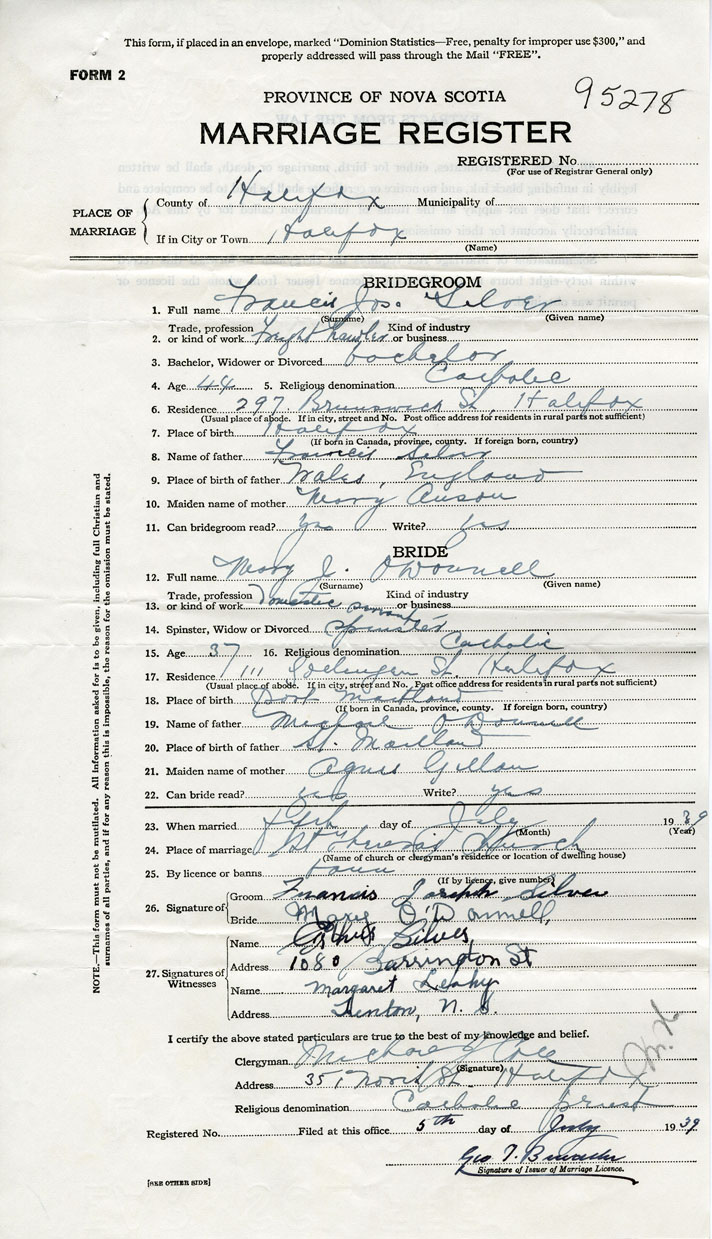 This form, if placed in an envelope, marked “Dominion Statistics—Free, penalty for improper use $300,” and
properly addressed will pass through the Mail “FREE”.
FORM 2
95278
PROVINCE OF NOVA SCOTIA
MARRIAGE REGISTER
REGISTERED No.
(For use of Registrar General only)
PLACE OF MARRIAGE
County of Halifax Municipality of
If in City or Town Halifax
(Name)
BRIDEGROOM
1. Full name Francis Jos. Silver
(Surname) (Given name)
Trade, profession Kind of industry
2. or kind of work or business
3. Bachelor, Widower or Divorced bachelor
4. Age 44 5. Religious denomination Catholic
6. Residence 297 Brunswick St, Halifax
(Usual place of abode. If in city, street and No. Post office address for residents in rural parts not sufficient)
7. Place of birth Halifax
(If born in Canada, province, county. If foreign born, country)
8. Name of father Francis Silver
9. Place of birth of father Wales, England
10. Maiden name of mother Mary
11. Can bridegroom read? yes Write? yes
BRIDE
12. Full name Mary J. O'Donnell
(Surname) (Given name)
Trade, profession Kind of industry
13. or kind of work Domestic servant or business
14. Spinster, Widow or Divorced Spinster
15. Age 37 16. Religious denomination Catholic
17. Residence 111 St. Halifax
(Usual place of abode. If in city, street and No. Post office address for residents in rural parts not sufficient)
18. Place of birth Port Maitland
(If born in Canada, province, county. If foreign born, country)
19. Name of father Michael O'Donnell
20. Place of birth of father Maitland
21. Maiden name of mother Agnes
22. Can bride read? yes Write? yes
23. When married day of July 1939
(Month) (Year)
24. Place of marriage Church
(Name of church or clergyman's residence or location of dwelling house)
25. By licence or banns
(If by licence, give number)
26. Signature of
Groom Francis Joseph Silver
Bride Mary O'Donnell,
27. Signatures of Witnesses
Name Silver,
Address 1080 Barrington St
Name Margaret Leahy
Address Trenton, N. S.
I certify the above stated particulars are true to the best of my knowledge and belief.
Clergyman Michael
(Signature)
Address Halifax
Religious denomination Catholic priest
Registered No. Filed at this office 5th day of July 1939
Geo T.
Signature of Issuer of Marriage Licence.
[SEE OTHER SIDE]
NOTE.—This form must not be mutilated. All information asked for is to be given, including full Christian and
surnames of all parties, and if for any reason this is impossible, the reason for the omission must be stated.